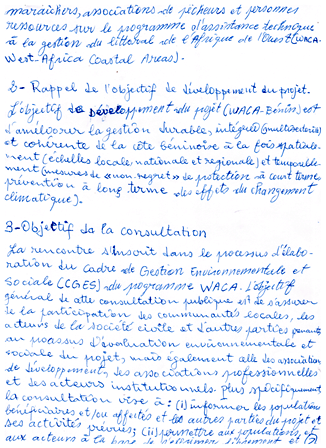 maraîchers, associations de pêcheurs et personnes
ressources sur le programme d'assistance technique
à la gestion du littoral de l'Afrique de l'Ouest (WACA-
West-Africa Coastal Areas).
2- Rappel de l'objectif de développement du projet.
L'objectif de développement du projet (WACA-Bénin) est
d'améliorer la gestion durable, intégrée (multisectorielle)
et cohérente de la côte béninoise à la fois spatiale-
ment (échelles locale, nationale et régionale) et temporelle-
ment (mesures de « non regret » de protection à court terme,
prévention à long terme des effets du changement
climatique).
3-Objectif de la consultation
La rencontre s'inscrit dans le processus d'élabo-
ration du Cadre de Gestion Environnementale et
Sociale (CGES) du programme WACA. L'objectif
général de cette consultation publique est de s'assurer
de la participation des communautés locales, les
acteurs de la société civile et d'autres parties prenantes
au processus d'évaluation environnementale et
sociale du projet, mais également celle des associations
de développement, des associations professionnelles
et des acteurs institutionnels. Plus spécifiquement
la consultation vise à : (i) informer les populations
bénéficiaires et/ou affectées et les autres parties du projet et
ses activités prévues; (ii) permettre aux populations, et
aux acteurs à la base de